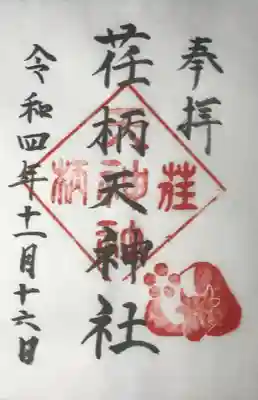 奉拝
荏柄天神社
令和四年十一月十六日
荏
柄
天神